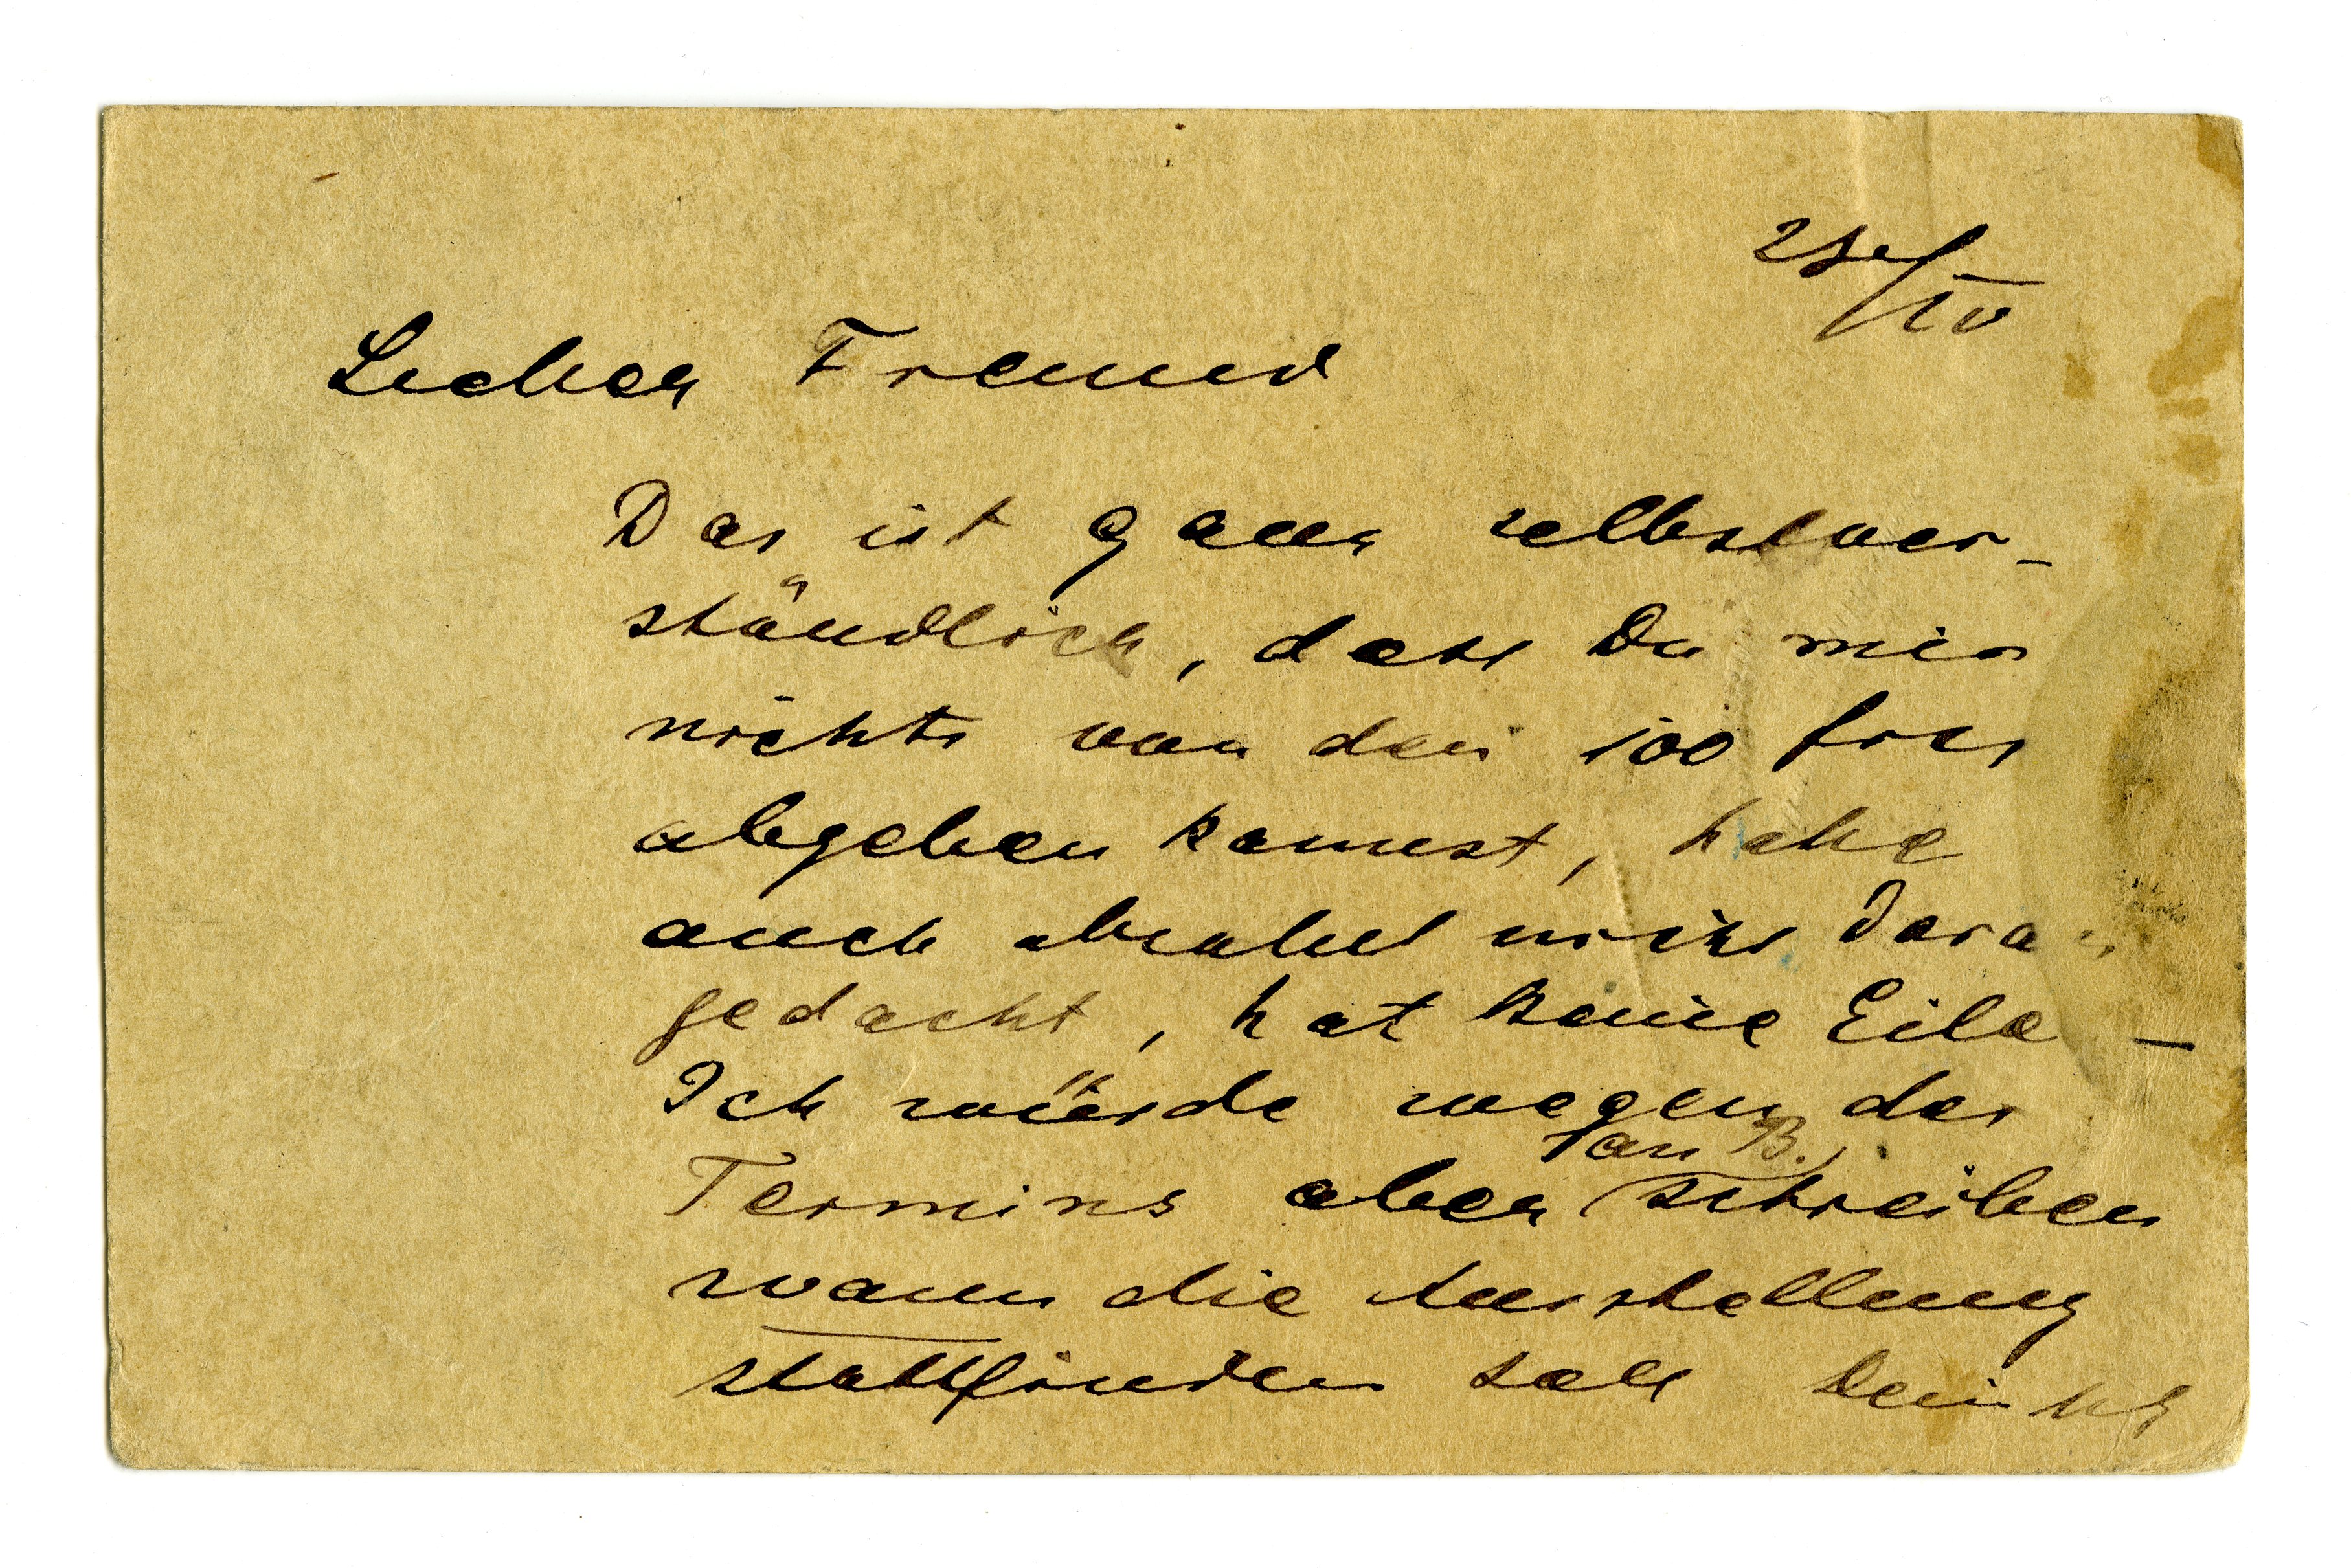 Lieber Freund
Das ist ganz selbstver-
ständlich, dass Du mir
nichts von den 100 frcs
abgeben kannst, habe
auch absolut nicht daran
gedacht, hat keine Eile —
Ich würde wegen des
an B.
Termins aber schreiben
wann die Ausstellung
stattfinden soll Dein